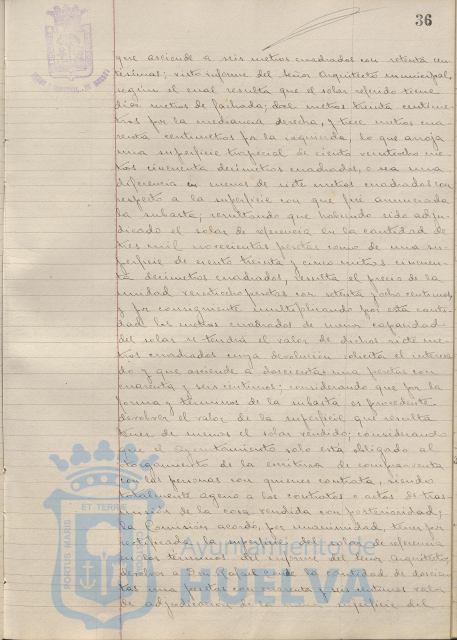 36
que asciende a seis metros cuadrados con setenta cen
tesimas; visto informe del Señor Arquitecto municipal,
segun el cual resulta que el solar referido tiene
diez metros de fachada; doce metros treinta centime
tros por la medianeria derecha, y trece metros cua
renta centimetros por la izquierda, lo que arroja
una superficie trapecial de ciento veintiocho me
tros cincuenta decimetros cuadrados, o sea una
diferencia en menos de siete metros cuadrados con
respecto a la superficie con que fué anunciada
la subasta; resultando que habiendo sido adju
dicado el solar de referencia en la cantidad de
tres mil novecientas pesetas como de una su
perficie de ciento treinta y cinco metros cincuen
ta decimetros cuadrados, resulta el precio de la
unidad veintiocho pesetas con setenta y ocho centimos,
y por consiguiente multiplicando por esta canti
dad los metros cuadrados de menor capacidad
del solar se tendrá el valor de dichos siete me
tros cuadrados cuya devolucion solicita el interesa
do y que asciende a doscientas una pesetas con
cuarenta y seis centimos; considerando que por la
forma y terminos de la subasta es procedente
devolver el valor de la superficie que resulta
tener de menos el solar vendido; considerando
que el Ayuntamiento solo está obligado al
otorgamiento de la escritura de compraventa
con las personas con quienes contrata, siendo
totalmente ageno a los contratos o actos de tras
mision de la cosa vendida con posterioridad;
la Comisión acordó, por unanimidad, tener por
rectificada la superficie del solar de referencia
en los terminos del informe del Señor Arquitecto,
devolver a Don Rafael la cantidad de doscien
tas una pesetas con cuarenta y seis centimos valor
de adjudicacion de la menor superficie del
HORTUS MARIS ET TERRIS
Ayuntamiento de
HUELVA